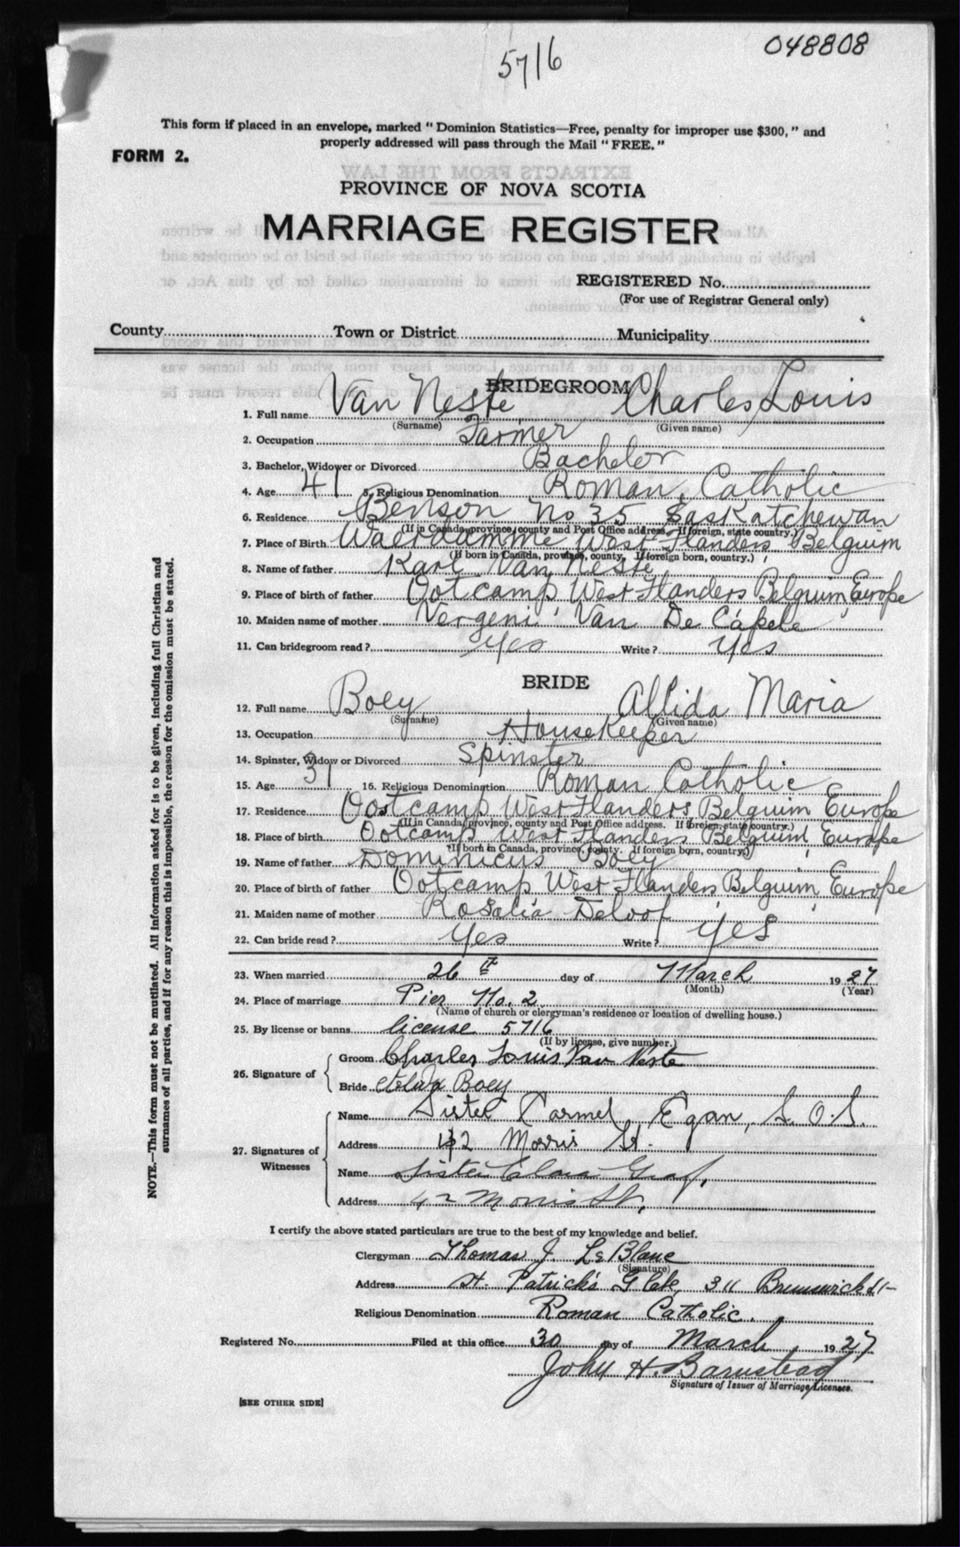 5716
048808
This form if placed in an envelope, marked "Dominion Statistics—Free, penalty for improper use $300," and
properly addressed will pass through the Mail "FREE."
FORM 2.
PROVINCE OF NOVA SCOTIA
MARRIAGE REGISTER
REGISTERED No.
(For use of Registrar General only)
County Town or District Municipality
BRIDEGROOM
1. Full name Van Neste Charles Louis
(Surname) (Given name)
2. Occupation Farmer
3. Bachelor, Widower or Divorced Bachelor
4. Age 41 5. Religious Denomination Roman Catholic
6. Residence Benson No 35 Saskatchewan
(If in Canada, province, county and Post Office address. If foreign, state country.)
7. Place of Birth Waerdamme West Flanders Belgium
(If born in Canada, province, county. If foreign born, country.)
8. Name of father Karl Van Neste
9. Place of birth of father Ootcamp West Flanders Belgium, Europe
10. Maiden name of mother Nergeni Van De Capele
11. Can bridegroom read? Yes Write? Yes
BRIDE
12. Full name Boey Allida Maria
(Surname) (Given name)
13. Occupation Housekeeper
14. Spinster, Widow or Divorced Spinster
15. Age 31 16. Religious Denomination Roman Catholic
17. Residence Oostcamp West Flanders Belguim Europe
(If in Canada, province, county and Post Office address. If foreign, state country.)
18. Place of birth Ootcamp West Flanders Belguim, Europe
(If born in Canada, province, county. If foreign born, country.)
19. Name of father Dominicus Boey
20. Place of birth of father Ootcamp West Flanders Belguim, Europe
21. Maiden name of mother Rosalia Deloof
22. Can bride read? Yes Write? Yes
23. When married 26th day of March 1927
(Month) (Year)
24. Place of marriage Pier No. 2
(Name of church or clergyman's residence or location of dwelling house.)
25. By license or banns license 5716
(If by license, give number.)
26. Signature of Groom Charles Louis Van Neste
Bride Boey
27. Signatures of Witnesses
Name Sister Carmel Egan, S.O.S.
Address 42 Morris St.
Name Sister Clara Graf,
Address 42 Morris St,
I certify the above stated particulars are true to the best of my knowledge and belief.
Clergyman Thomas J. LeBlanc
(Signature)
Address St. Patrick's Glebe 311 Brunswick St
Religious Denomination Roman Catholic.
Registered No. Filed at this office 30 day of March 1927
John H. Barnstead
Signature of Issuer of Marriage Licenses.
[SEE OTHER SIDE]
NOTE.—This form must not be mutilated. All information asked for is to be given, including full Christian and
surnames of all parties, and if for any reason this is impossible, the reason for the omission must be stated.